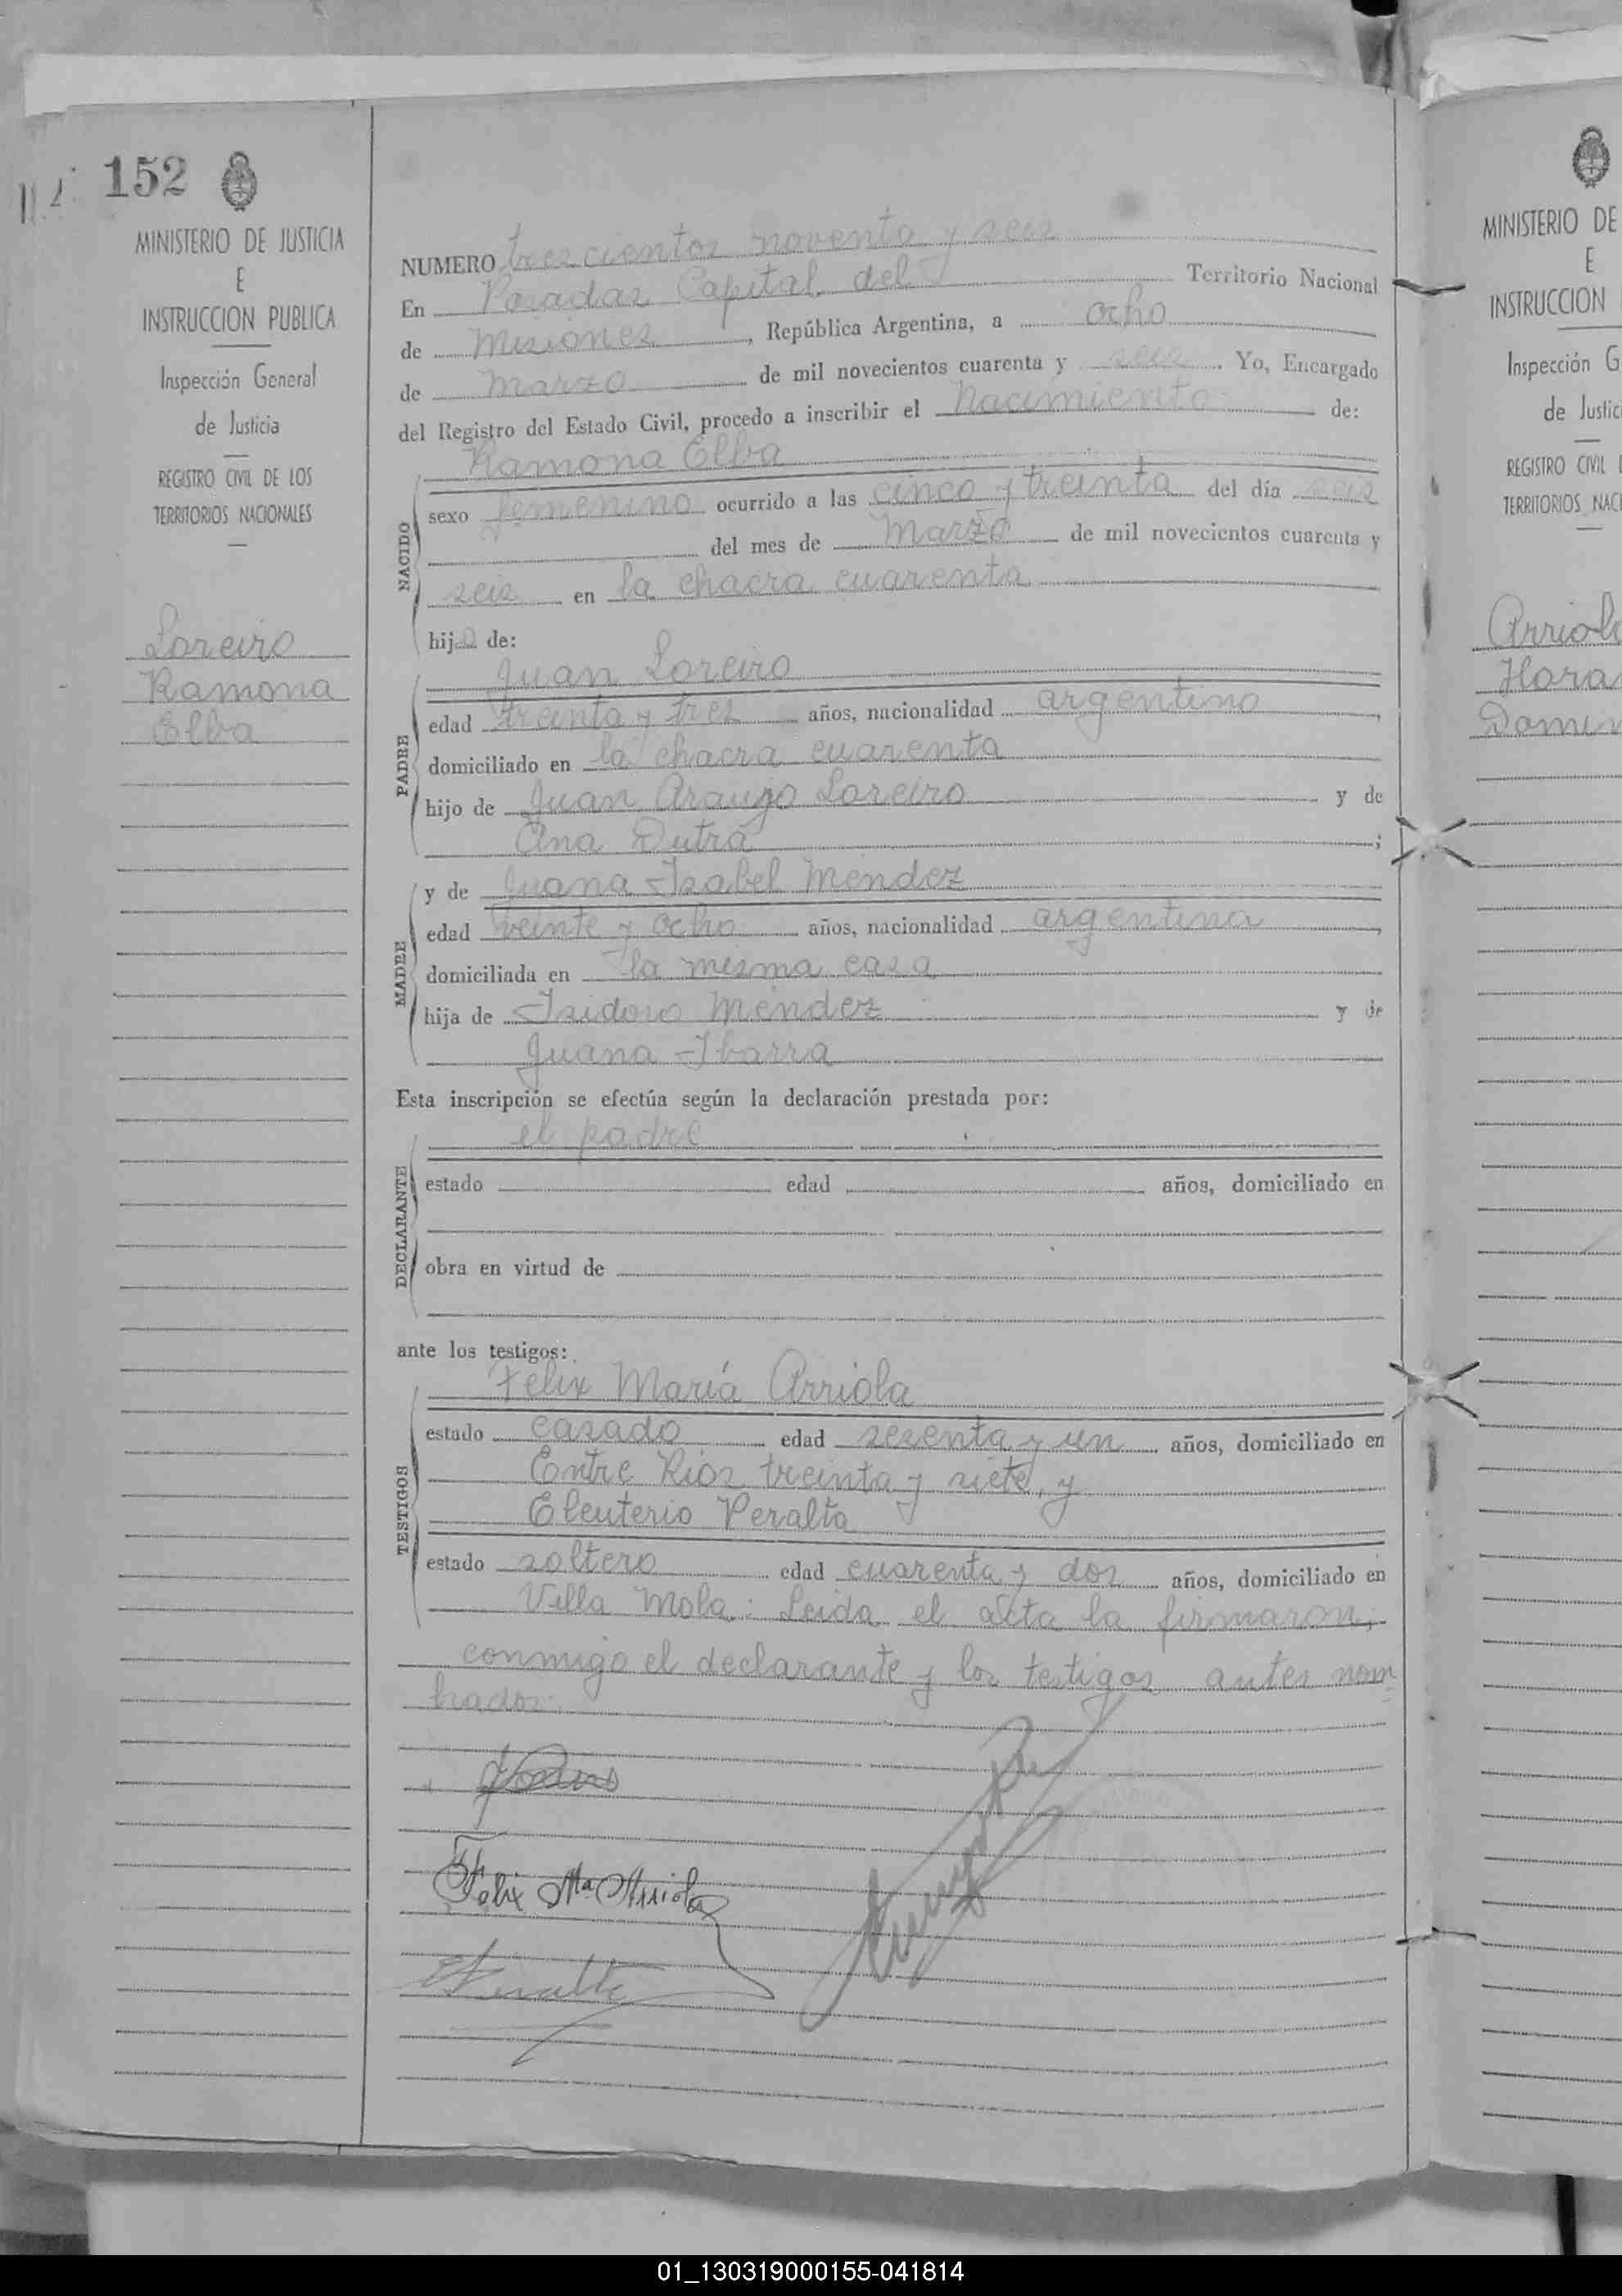 152
MINISTERIO DE JUSTICIA
E
INSTRUCCION PUBLICA
Inspección General
de Justicia
REGISTRO CIVIL DE LOS
TERRITORIOS NACIONALES
Loreiro
Ramona
Elba
NUMERO trescientos noventa y seis
En Posadas Capital del Territorio Nacional
de Misiones, República Argentina, a ocho
de marzo de mil novecientos cuarenta y seis. Yo, Encargado
del Registro del Estado Civil, procedo a inscribir el nacimiento de:
NACIDO
Ramona Elba
sexo femenino ocurrido a las cinco y treinta del día seis
del mes de Marzo de mil novecientos cuarenta y
seis en la chacra cuarenta
hija de:
PADRE
Juan Loreiro
edad treinta y tres años, nacionalidad argentino,
domiciliado en la chacra cuarenta
hijo de Juan Araujo Loreiro y de
Ana Dutra;
MADRE
y de Juana Isabel Méndez
edad veinte y ocho años, nacionalidad argentina,
domiciliada en la misma casa
hija de Isidoro Méndez y de
Juana Ibarra
Esta inscripción se efectúa según la declaración prestada por:
DECLARANTE
el padre
estado edad años, domiciliado en
obra en virtud de
ante los testigos:
TESTIGOS
Felix María Arriola
estado casado edad sesenta y un años, domiciliado en
Entre Rios treinta y siete, y
Eleuterio Peralta
estado soltero edad cuarenta y dos años, domiciliado en
Villa Mola: Leida el acta la firmaron;
conmigo el declarante y los testigos antes nom
brados.
Felix Ma Arriola
EPeralta
MINISTERIO DE
E
INSTRUCCION
Inspección G
de Justic
REGISTRO CIVIL
TERRITORIOS NAC
Arriol
Hora
Domin
01_130319000155-041814